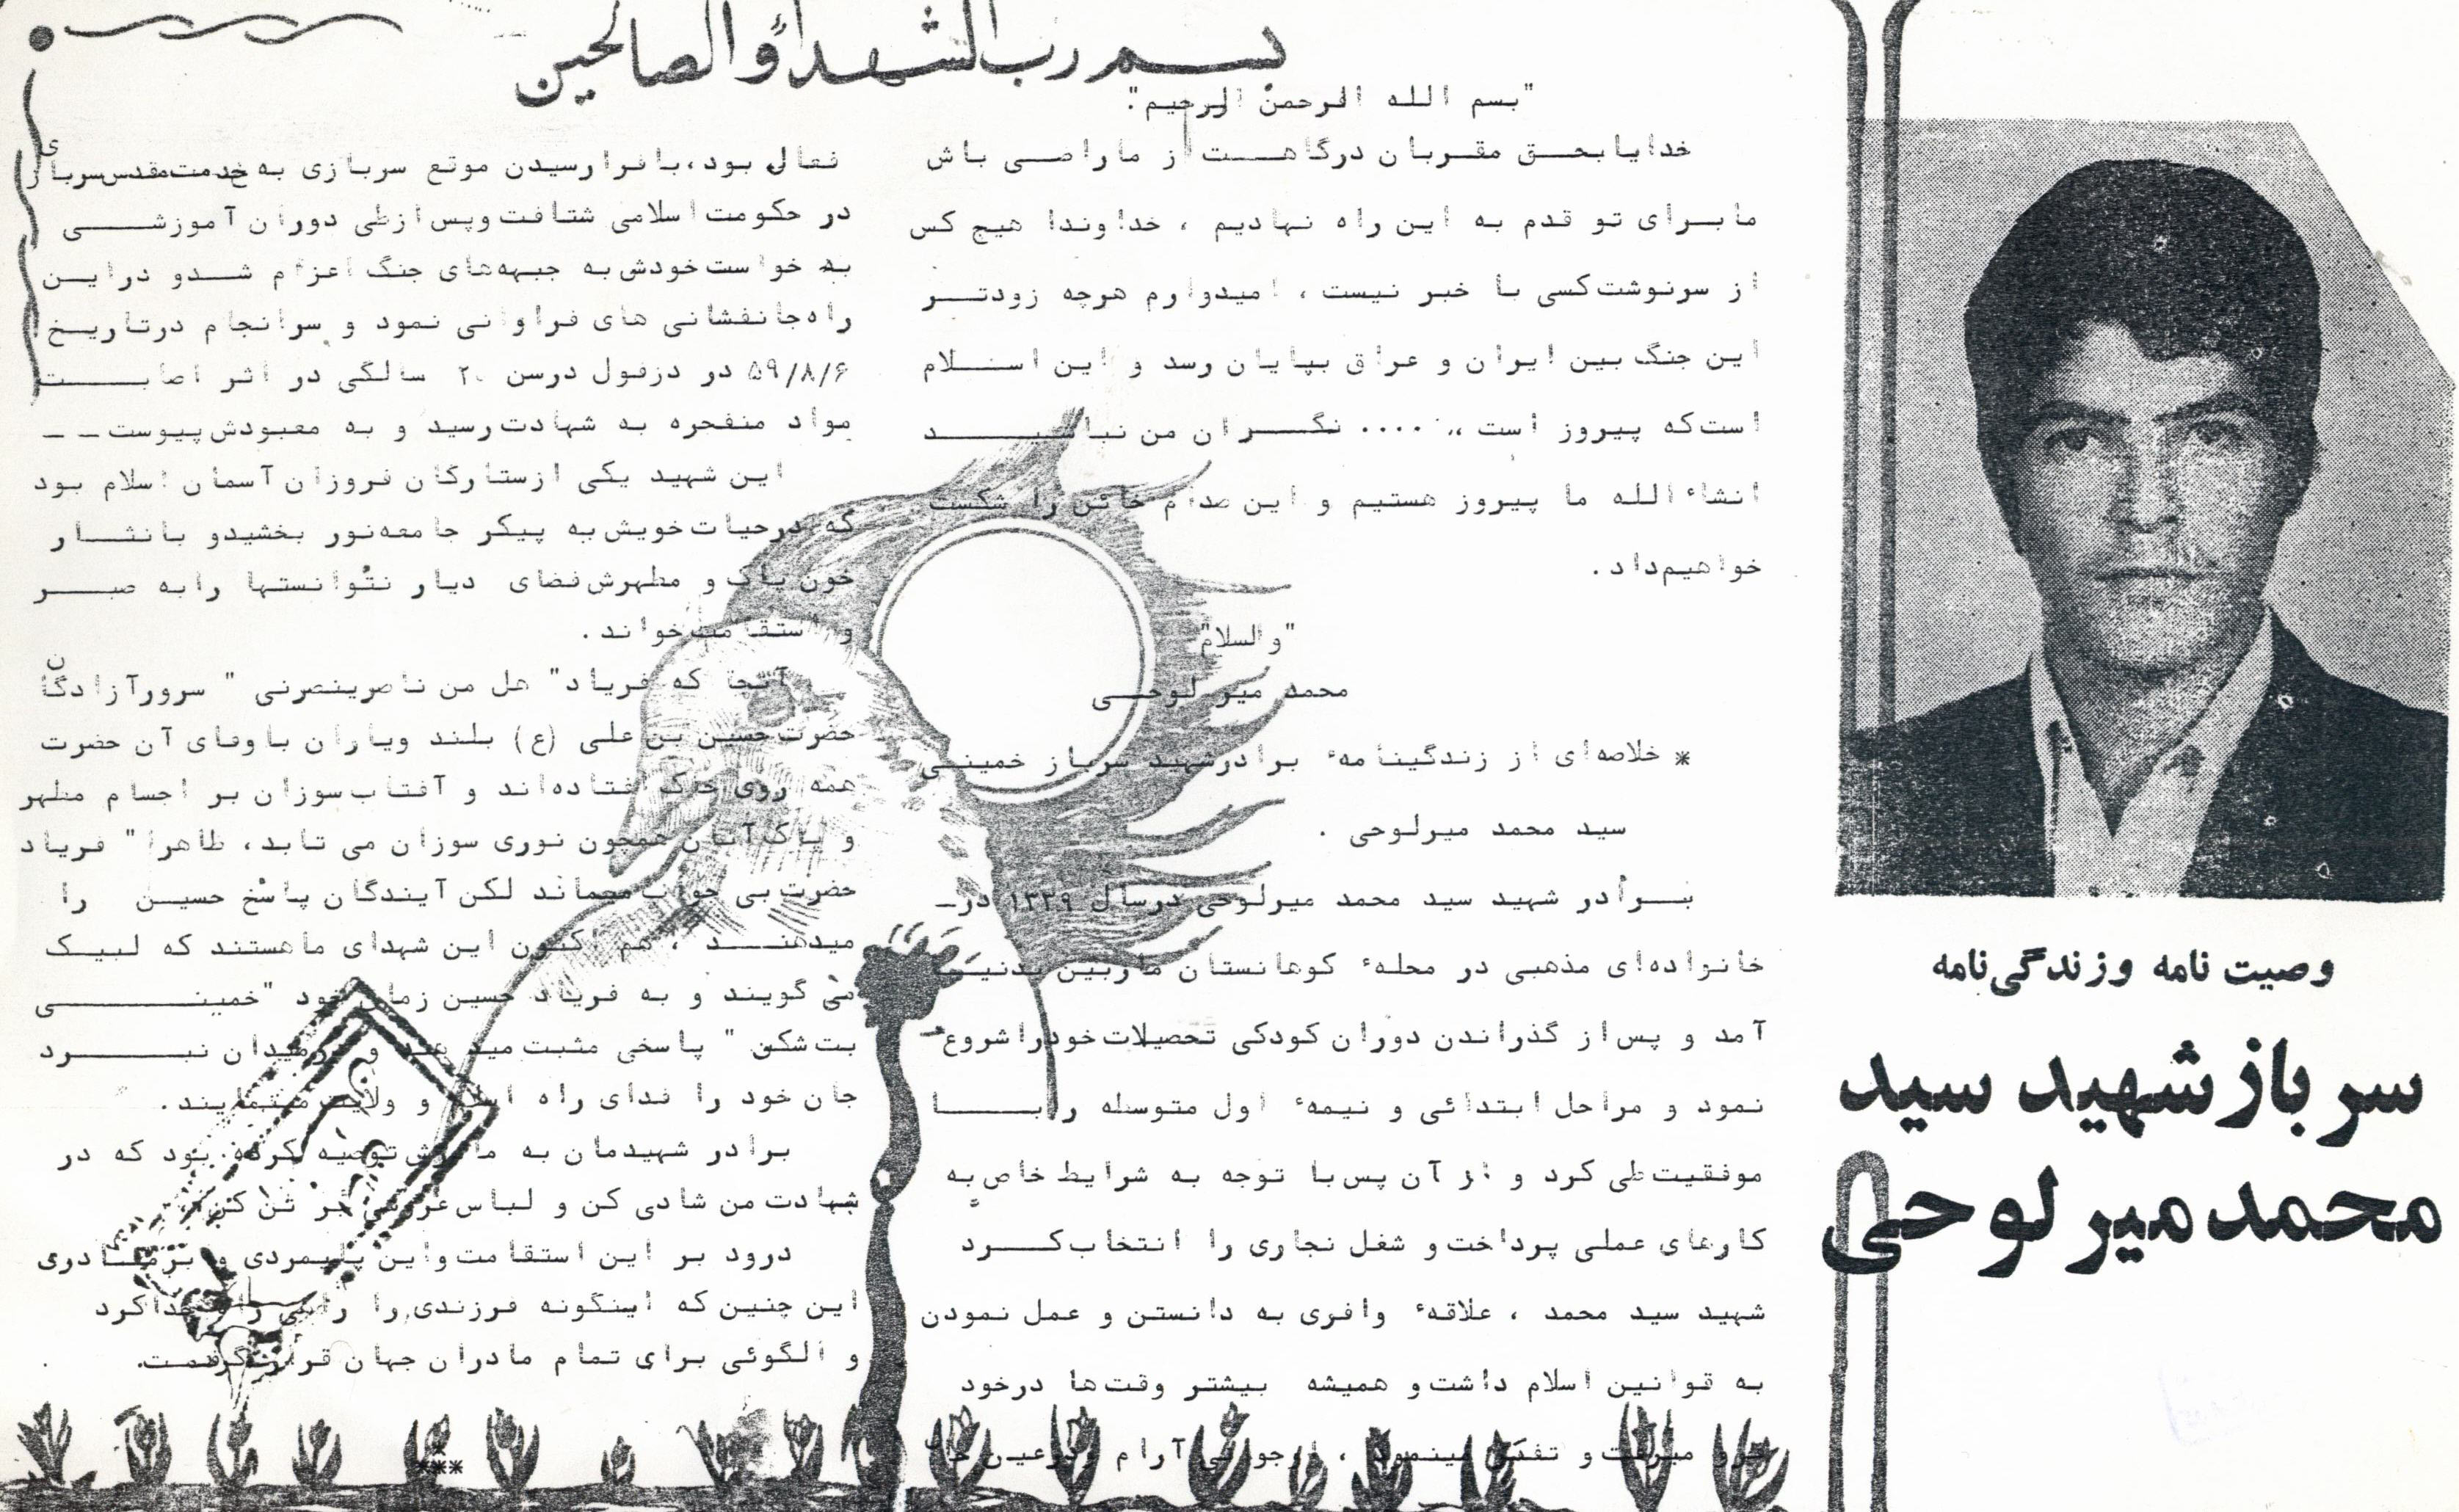 بسم رب الشهداء و الصالحین
"بسم الله الرحمن الرحیم"
خدایا بحق مقربان درگاهت از ما راضی باش
ما برای تو قدم به این راه نهادیم ، خداوندا هیچ کس
از سرنوشت کسی با خبر نیست ، امیدوارم هرچه زودتر
این جنگ بین ایران و عراق بپایان رسد و این اسلام
است که پیروز است ،، .... نگران من نباشید
انشاءالله ما پیروز هستیم و این صدام خائن را شکست
خواهیم داد .
"والسلام"
محمد میرلوحی
* خلاصه‌ای از زندگینامهٔ برادر شهید سرباز خمینی
سید محمد میرلوحی .
برادر شهید سید محمد میرلوحی درسال ۱۳۳۹ در-
خانواده‌ای مذهبی در محلهٔ کوهانستان ماربین بدنیا
آمد و پس از گذراندن دوران کودکی تحصیلات خود را شروع
نمود و مراحل ابتدائی و نیمهٔ اول متوسله را با
موفقیت طی کرد و از آن پس با توجه به شرایط خاص به
کارهای عملی پرداخت و شغل نجاری را انتخاب کرد
شهید سید محمد ، علاقهٔ وافری به دانستن و عمل نمودن
به قوانین اسلام داشت و همیشه بیشتر وقت‌ها درخود
فرو میرفت و تفکر مینمود ، آرام و درعین حال
فعال بود، با فرا رسیدن موقع سربازی به خدمت مقدس سربازی
در حکومت اسلامی شتافت و پس از طی دوران آموزشی
به خواست خودش به جبهه‌های جنگ اعزام شد و دراین
راه جانفشانی های فراوانی نمود و سرانجام درتاریخ
۵۹/۸/۶ در دزفول درسن ۲۰ سالگی در اثر اصابت
مواد منفجره به شهادت رسید و به معبودش پیوست--
این شهید یکی از ستارگان فروزان آسمان اسلام بود
که درحیات خویش به پیکر جامعه نور بخشید و با نثار
خون پاک و مطهرش فضای دیار نتوانستها را به صبر
و استقامت خواند .
آنجا که فریاد " هل من ناصر ینصرنی " سرور آزادگان
حضرت حسین بن علی (ع) بلند و یاران باوفای آن حضرت
همه روی خاک افتاده‌اند و آفتاب سوزان بر اجسام مطهر
و پاک آنان همچون نوری سوزان می تابد، ظاهرا " فریاد
حضرت بی جواب میماند لکن آیندگان پاسخ حسین را
میدهند ، هم اکنون این شهدای ما هستند که لبیک
می گویند و به فریاد حسین زمان خود "خمینی
بت شکن " پاسخی مثبت میدهند و درمیدان نبرد
جان خود را فدای راه اسلام و ولایت مینمایند.
برادر شهیدمان به مادرش توصیه کرده بود که در
شهادت من شادی کن و لباس عروسی بر تن کن.
درود بر این استقامت و این پایمردی و بر مادری
این چنین که اینگونه فرزندی را راهی راه خدا کرد
و الگوئی برای تمام مادران جهان قرار گرفت.
****
وصیت نامه و زندگی‌نامه
سرباز شهید سید
محمد میرلوحی